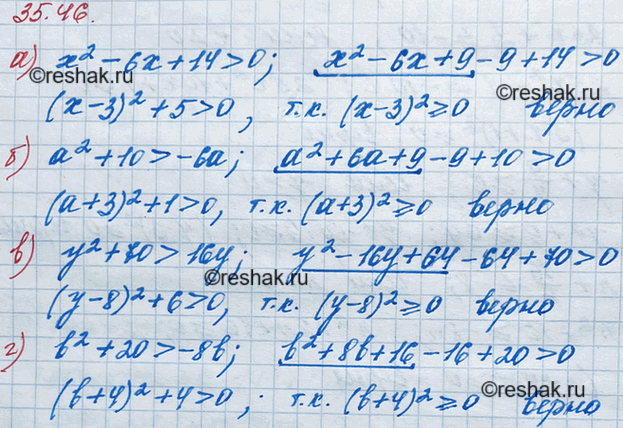 35.46.
а) x² - 6x + 14 > 0; x² - 6x + 9 - 9 + 14 > 0
©reshak.ru
©reshak.ru
(x - 3)² + 5 > 0, т.к. (x - 3)² ≥ 0 верно
б) a² + 10 > -6a; a² + 6a + 9 - 9 + 10 > 0
(a + 3)² + 1 > 0, т.к. (a + 3)² ≥ 0 верно
в) y² + 70 > 16y; y² - 16y + 64 - 64 + 70 > 0
©reshak.ru
(y - 8)² + 6 > 0, т.к. (y - 8)² ≥ 0 верно
г) b² + 20 > -8b; b² + 8b + 16 - 16 + 20 > 0
©reshak.ru
©reshak.ru
(b + 4)² + 4 > 0, т.к. (b + 4)² ≥ 0 верно